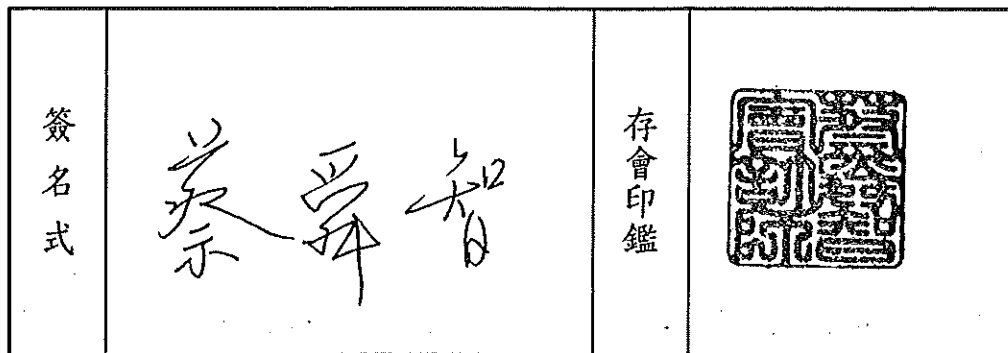 簽名式
蔡舜智
存會印鑑